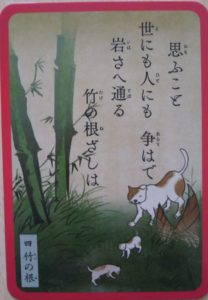 思ふこと
世にも人にも 争はで
岩さへ通る
竹の根ざしは
四 竹の根